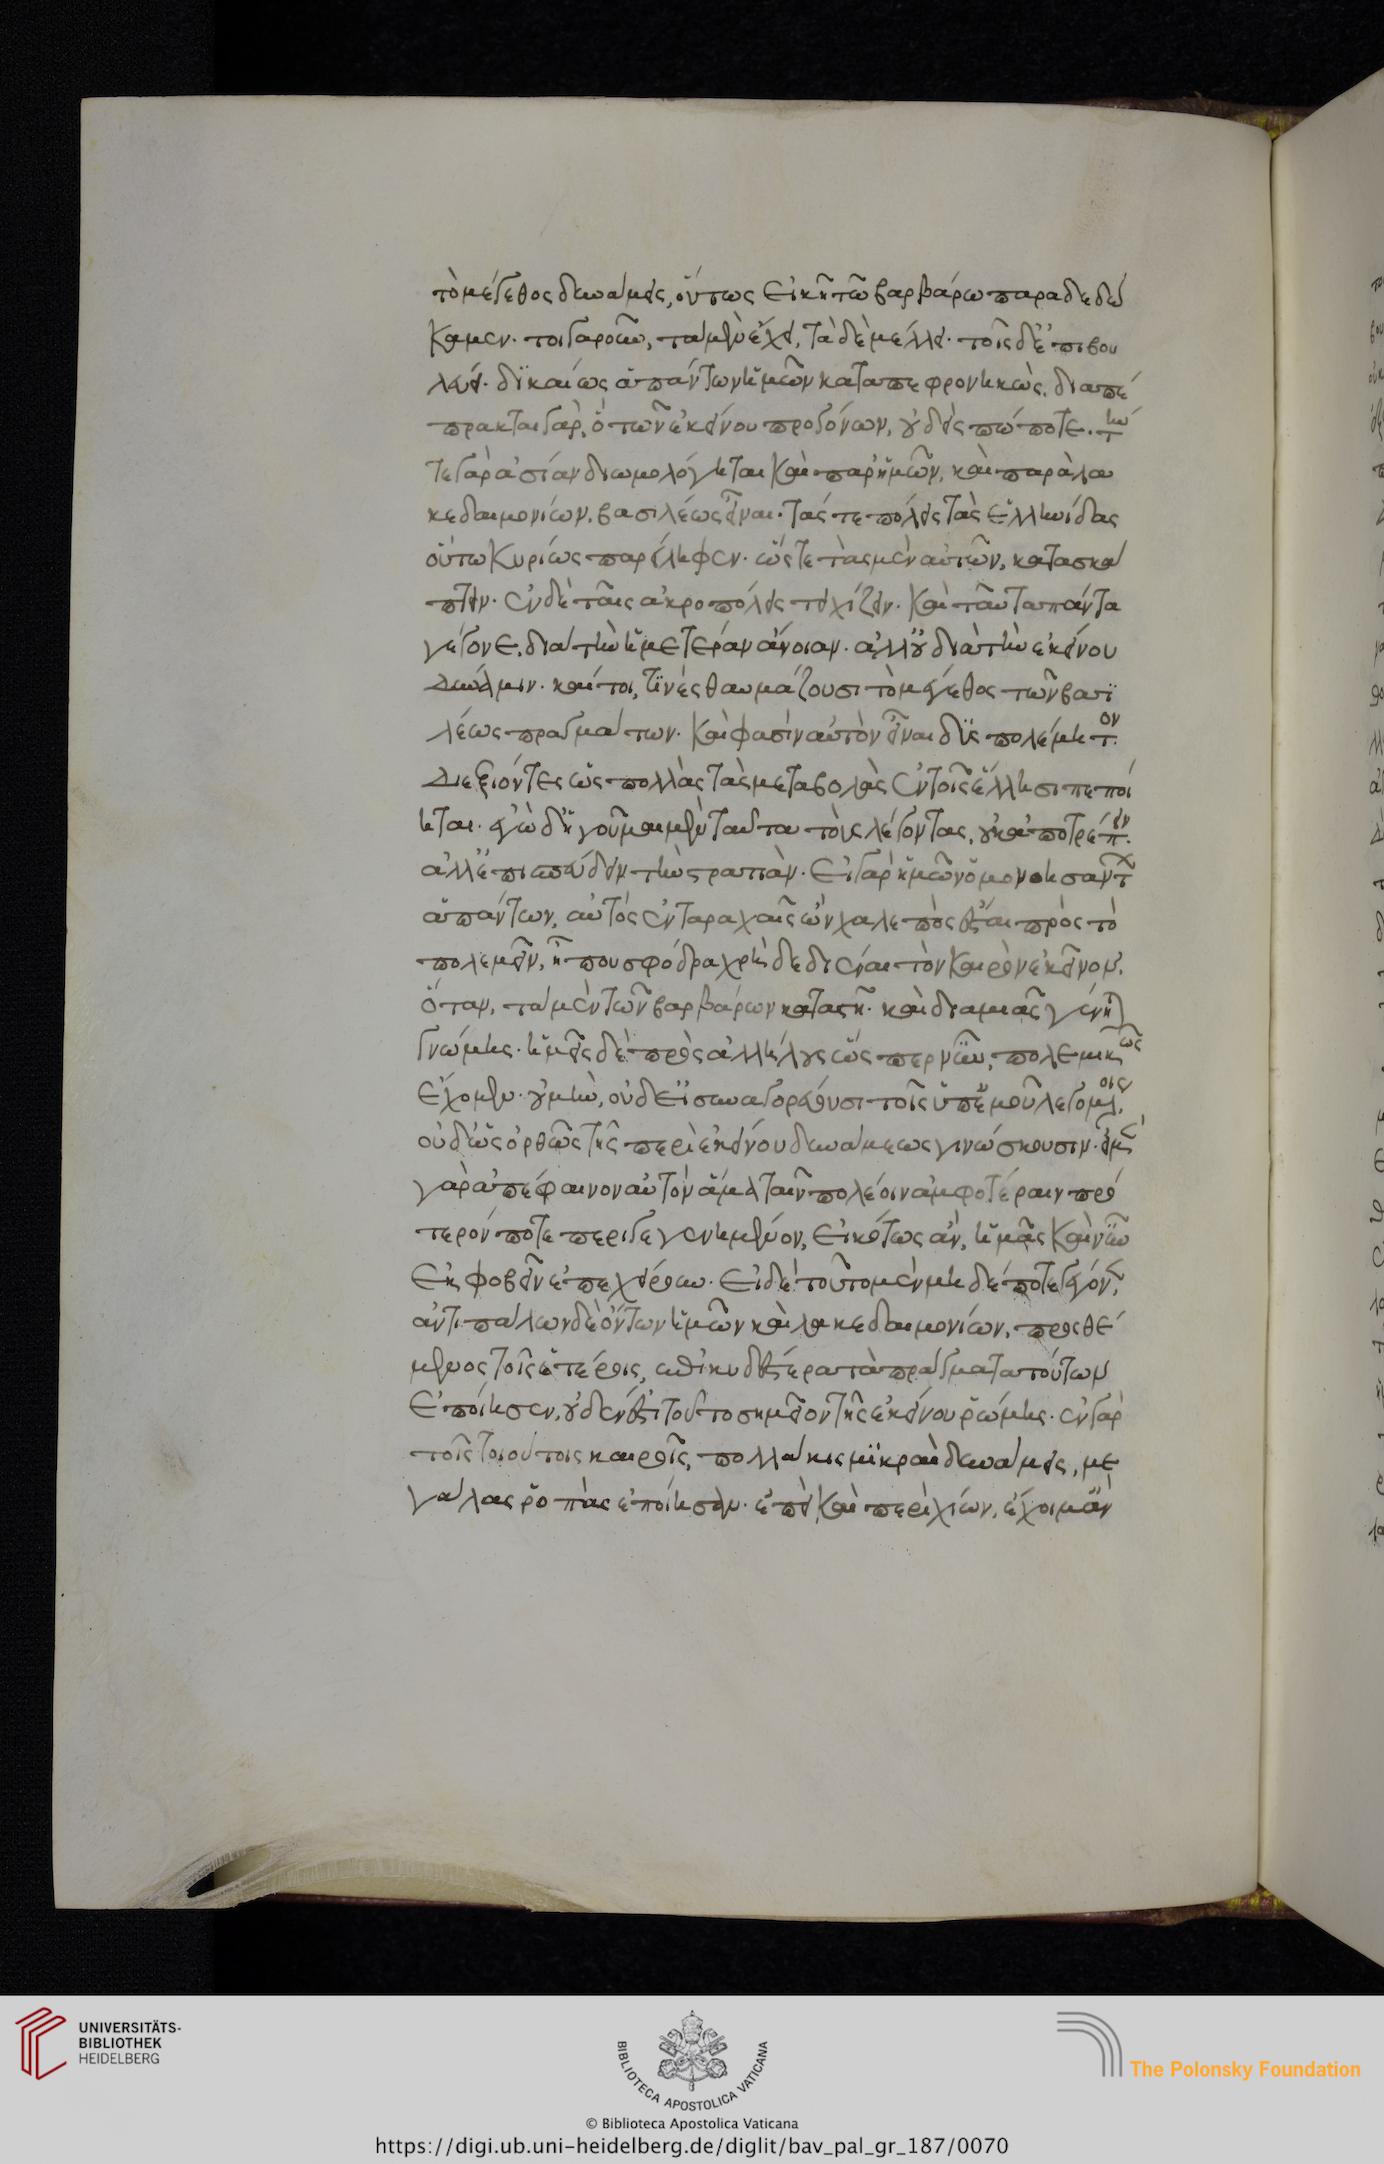 τὸ μέγεθος δυνάμεις, οὕτως εἰκῆ τῶ βαρβάρω παραδεδώ
καμεν. τοιγαροῦν, τὰ μὲν ἔχει, τὰ δὲ μέλλει. τοῖς δ' ἐπιβου
λεύει. δικαίως ἁπάντων ἡμῶν καταπεφρονηκώς. διαπέ
πρακται γὰρ, ὃ τῶν ἐκείνου προγόνων, οὐδεὶς πώποτε. τήν
τε γὰρ ἀσίαν διωμολόγηται καὶ παρ' ἡμῶν, καὶ παρὰ λα
κεδαιμονίων, βασιλέως εἶναι. τάς τε πόλεις τὰς ἑλληνίδας
οὕτω κυρίως παρείληφεν. ὥστε τὰς μὲν αὐτῶν, κατασκά
πτειν. ἐν δὲ ταῖς ἀκροπόλεις τειχίζειν. καὶ ταῦτα πάντα
γέγονε, διὰ τὴν ἡμετέραν ἄνοιαν. ἀλλ' οὐ διὰ τὴν ἐκείνου
δύναμιν. καίτοι, τινὲς θαυμάζουσι τὸ μέγεθος τῶν βασι
λέως πραγμάτων. καὶ φασὶν αὐτὸν εἶναι δυσπολέμητον.
διεξιόντες ὡς πολλὰς τὰς μεταβολὰς ἐν τοῖς ἕλλησι πεποί
ηται. ἐγὼ δ' ἡγοῦμαι μὲν ταῦτα τοὺς λέγοντας, οὐκ ἀποτρέπειν.
ἀλλ' ἐπισπεύδειν τὴν στρατιάν. εἰ γὰρ ἡμῶν ὁμονοησάντων
ἁπάντων, αὐτὸς ἐν ταραχαῖς ὢν χαλεπὸς ἔσται πρὸς τὸ
πολεμεῖν, ἦ που σφόδρα χρὴ δεδιέναι τὸν καιρὸν ἐκεῖνον.
ὅταν, τὰ μὲν τῶν βαρβάρων καταστῆ. καὶ διὰ μιᾶς γένηται
γνώμης. ἡμεῖς δὲ πρὸς ἀλλήλους ὥσπερ νῦν, πολεμικῶς
ἔχομεν. οὐ μὴν, οὐδ' εἰ συναγορεύουσι τοῖς ὑπ' ἐμοῦ λεγομένοις,
οὐδ' ὣς ὀρθῶς τῆς περὶ ἐκείνου δυνάμεως γινώσκουσιν. εἰ μὲν
γὰρ ἀπέφαινον αὐτὸν ἅμα ταῖν πολέοιν ἀμφοτέραιν πρό
τερόν ποτε περιγεγενημένον, εἰκότως ἂν, ἡμᾶς καὶ νῦν
ἐκφοβεῖν ἐπεχείρουν. εἰ δὲ τοῦτο μὲν μηδέποτε γέγονεν,
ἀντιπάλων δὲ ὄντων ἡμῶν καὶ λακεδαιμονίων, προσθέ
μενος τοῖς ἑτέροις, ἐπικυδέστερα τὰ πράγματα τούτων
ἐποίησεν, οὐδέν ἐστι τοῦτο σημεῖον τῆς ἐκείνου ῥώμης. ἐν γὰρ
τοῖς τοιούτοις καιροῖς, πολλάκις μικραὶ δυνάμεις, με
γάλας ῥοπὰς ἐποίησαν. ἐπεὶ καὶ περὶ χίων, ἔχοιμ' ἂν
UNIVERSITÄTS-
BIBLIOTHEK
HEIDELBERG
BIBLIOTECA APOSTOLICA VATICANA
The Polonsky Foundation
© Biblioteca Apostolica Vaticana
https://digi.ub.uni-heidelberg.de/diglit/bav_pal_gr_187/0070